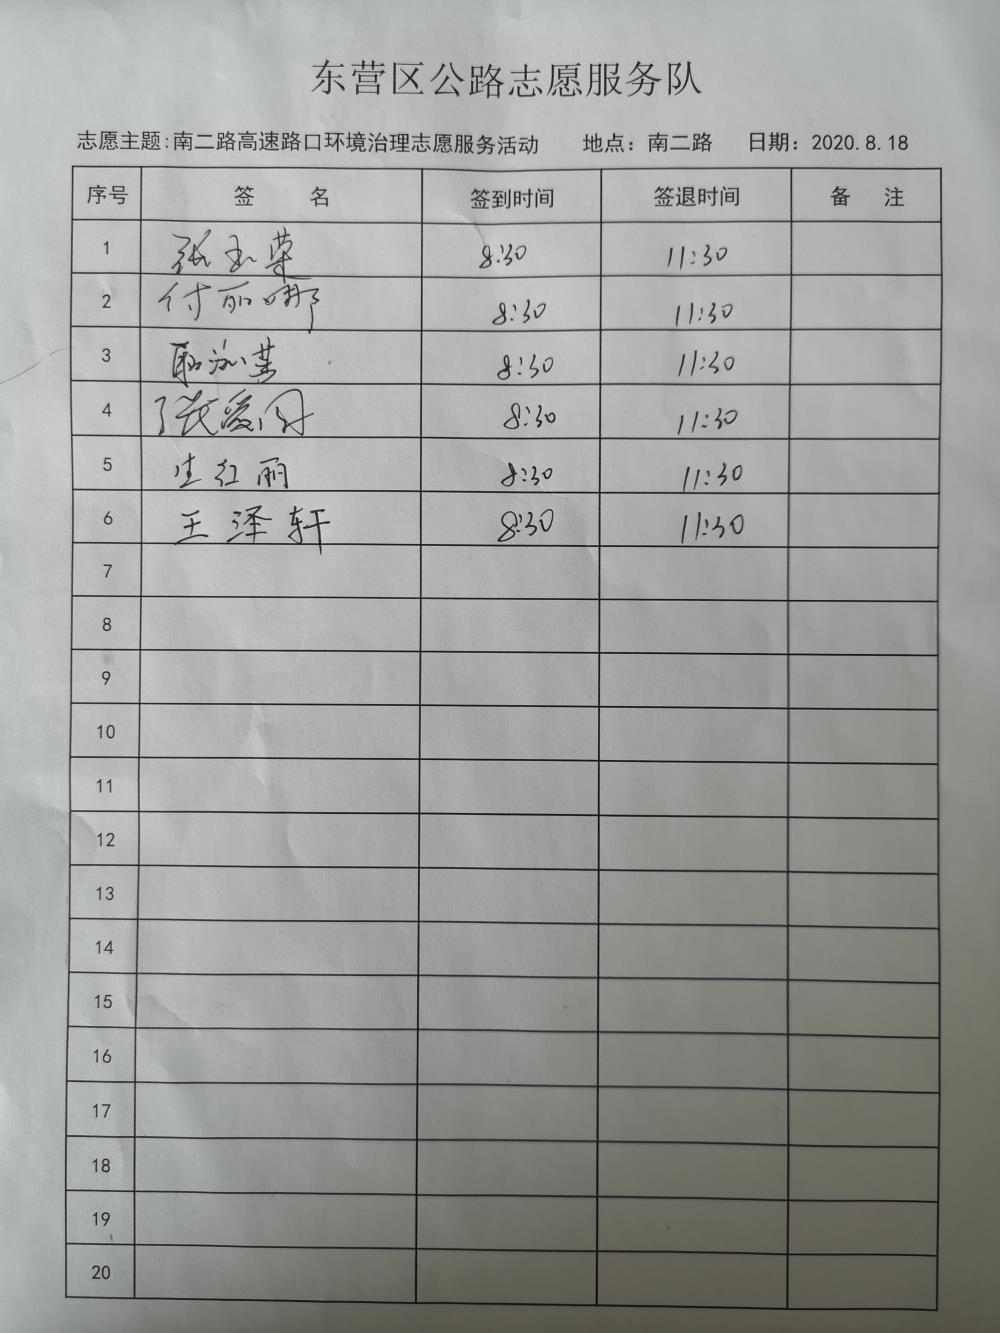 东营区公路志愿服务队
志愿主题:南二路高速路口环境治理志愿服务活动 地点：南二路 日期：2020.8.18
序号 签 名 签到时间 签退时间 备 注
1 张玉荣 8:30 11:30
2 付丽娜 8:30 11:30
3 8:30 11:30
4 张爱国 8:30 11:30
5 生红丽 8:30 11:30
6 王泽轩 8:30 11:30
7
8
9
10
11
12
13
14
15
16
17
18
19
20